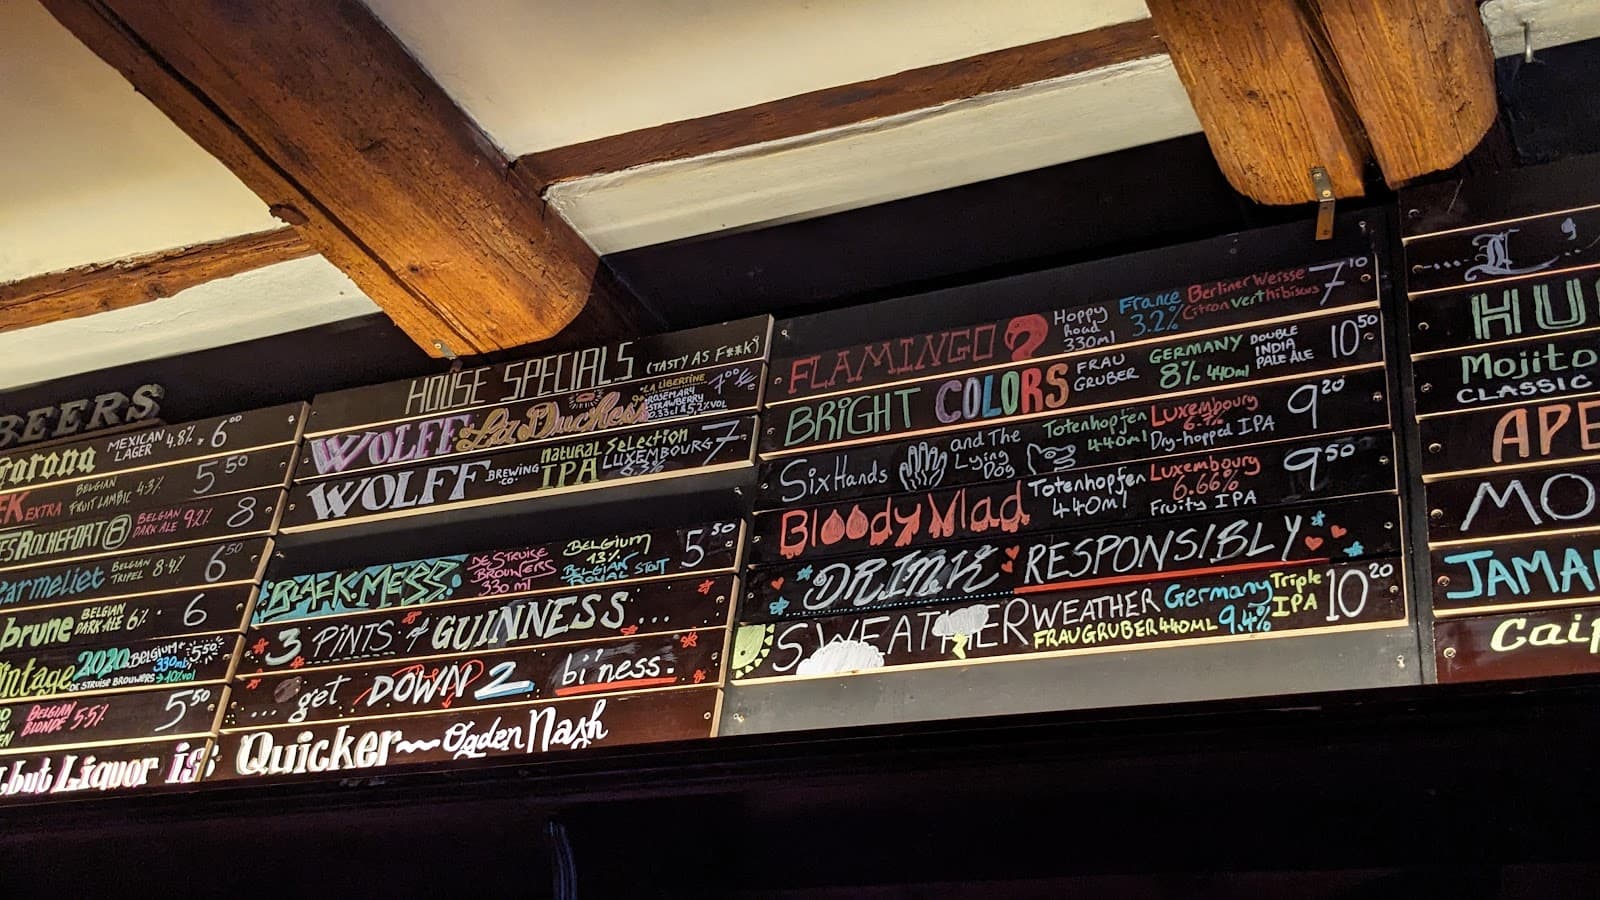 BEERS
MEXICAN LAGER 4.8% 6⁰⁰
EXTRA BELGIAN FRUIT LAMBIC 4.3% 5⁵⁰
ROCHEFORT 8 BELGIAN DARK ALE 9.2% 8
armeliet BELGIAN TRIPEL 8.4% 6⁵⁰
brune BELGIAN DARK ALE 6% 6
intage 2020 BELGIUM 330ml DE STRUISE BROUWERS 10% vol 5⁵⁰
BELGIAN BLONDE 5.5% 5⁵⁰
but Liquor is
HOUSE SPECIALS (TASTY AS F**K)
WOLFF La Duchesse LA LIBERTINE ROSEMARY STRAWBERRY 0.33cl & 5,2% VOL 7⁰⁰
WOLFF BREWING CO. natural Selection IPA LUXEMBOURG 7
BLACK MESS. DE STRUISE BROUWERS 330 ml BELGIUM 13% BELGIAN ROYAL STOUT 5⁵⁰
3 PINTS of GUINNESS...
... get DOWN 2 bi'ness.
Quicker ~ Ogden Nash
FLAMINGO Hoppy Road 330ml France 3.2% Berliner Weisse Citron vert hibiscus 7¹⁰
BRIGHT COLORS FRAU GRUBER GERMANY 8% 440ml DOUBLE INDIA PALE ALE 10⁵⁰
Six Hands and The Lying Dog Totenhopfen 440ml Luxembourg Dry-hopped IPA 9²⁰
Bloody Vlad Totenhopfen 440ml Luxembourg 6.66% Fruity IPA 9⁵⁰
DRINK RESPONSIBLY
SWEATHER WEATHER FRAUGRUBER 440ML Germany 9.4% Triple IPA 10²⁰
L
HU
Mojito
CLASSIC
APE
MO
JAMA
Caip